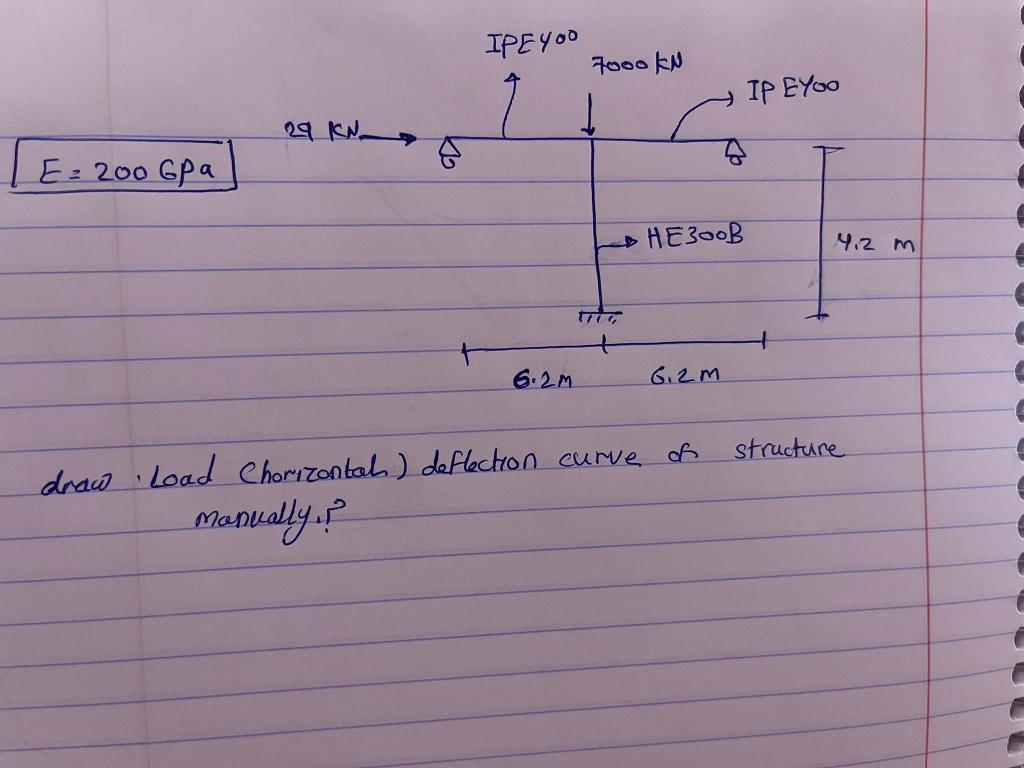 IPE400
7000 KN
IPE400
29 KN
E = 200 GPa
HE300B
4.2 m
6.2m
6.2m
draw Load (horizontal) deflection curve of structure
manually.?